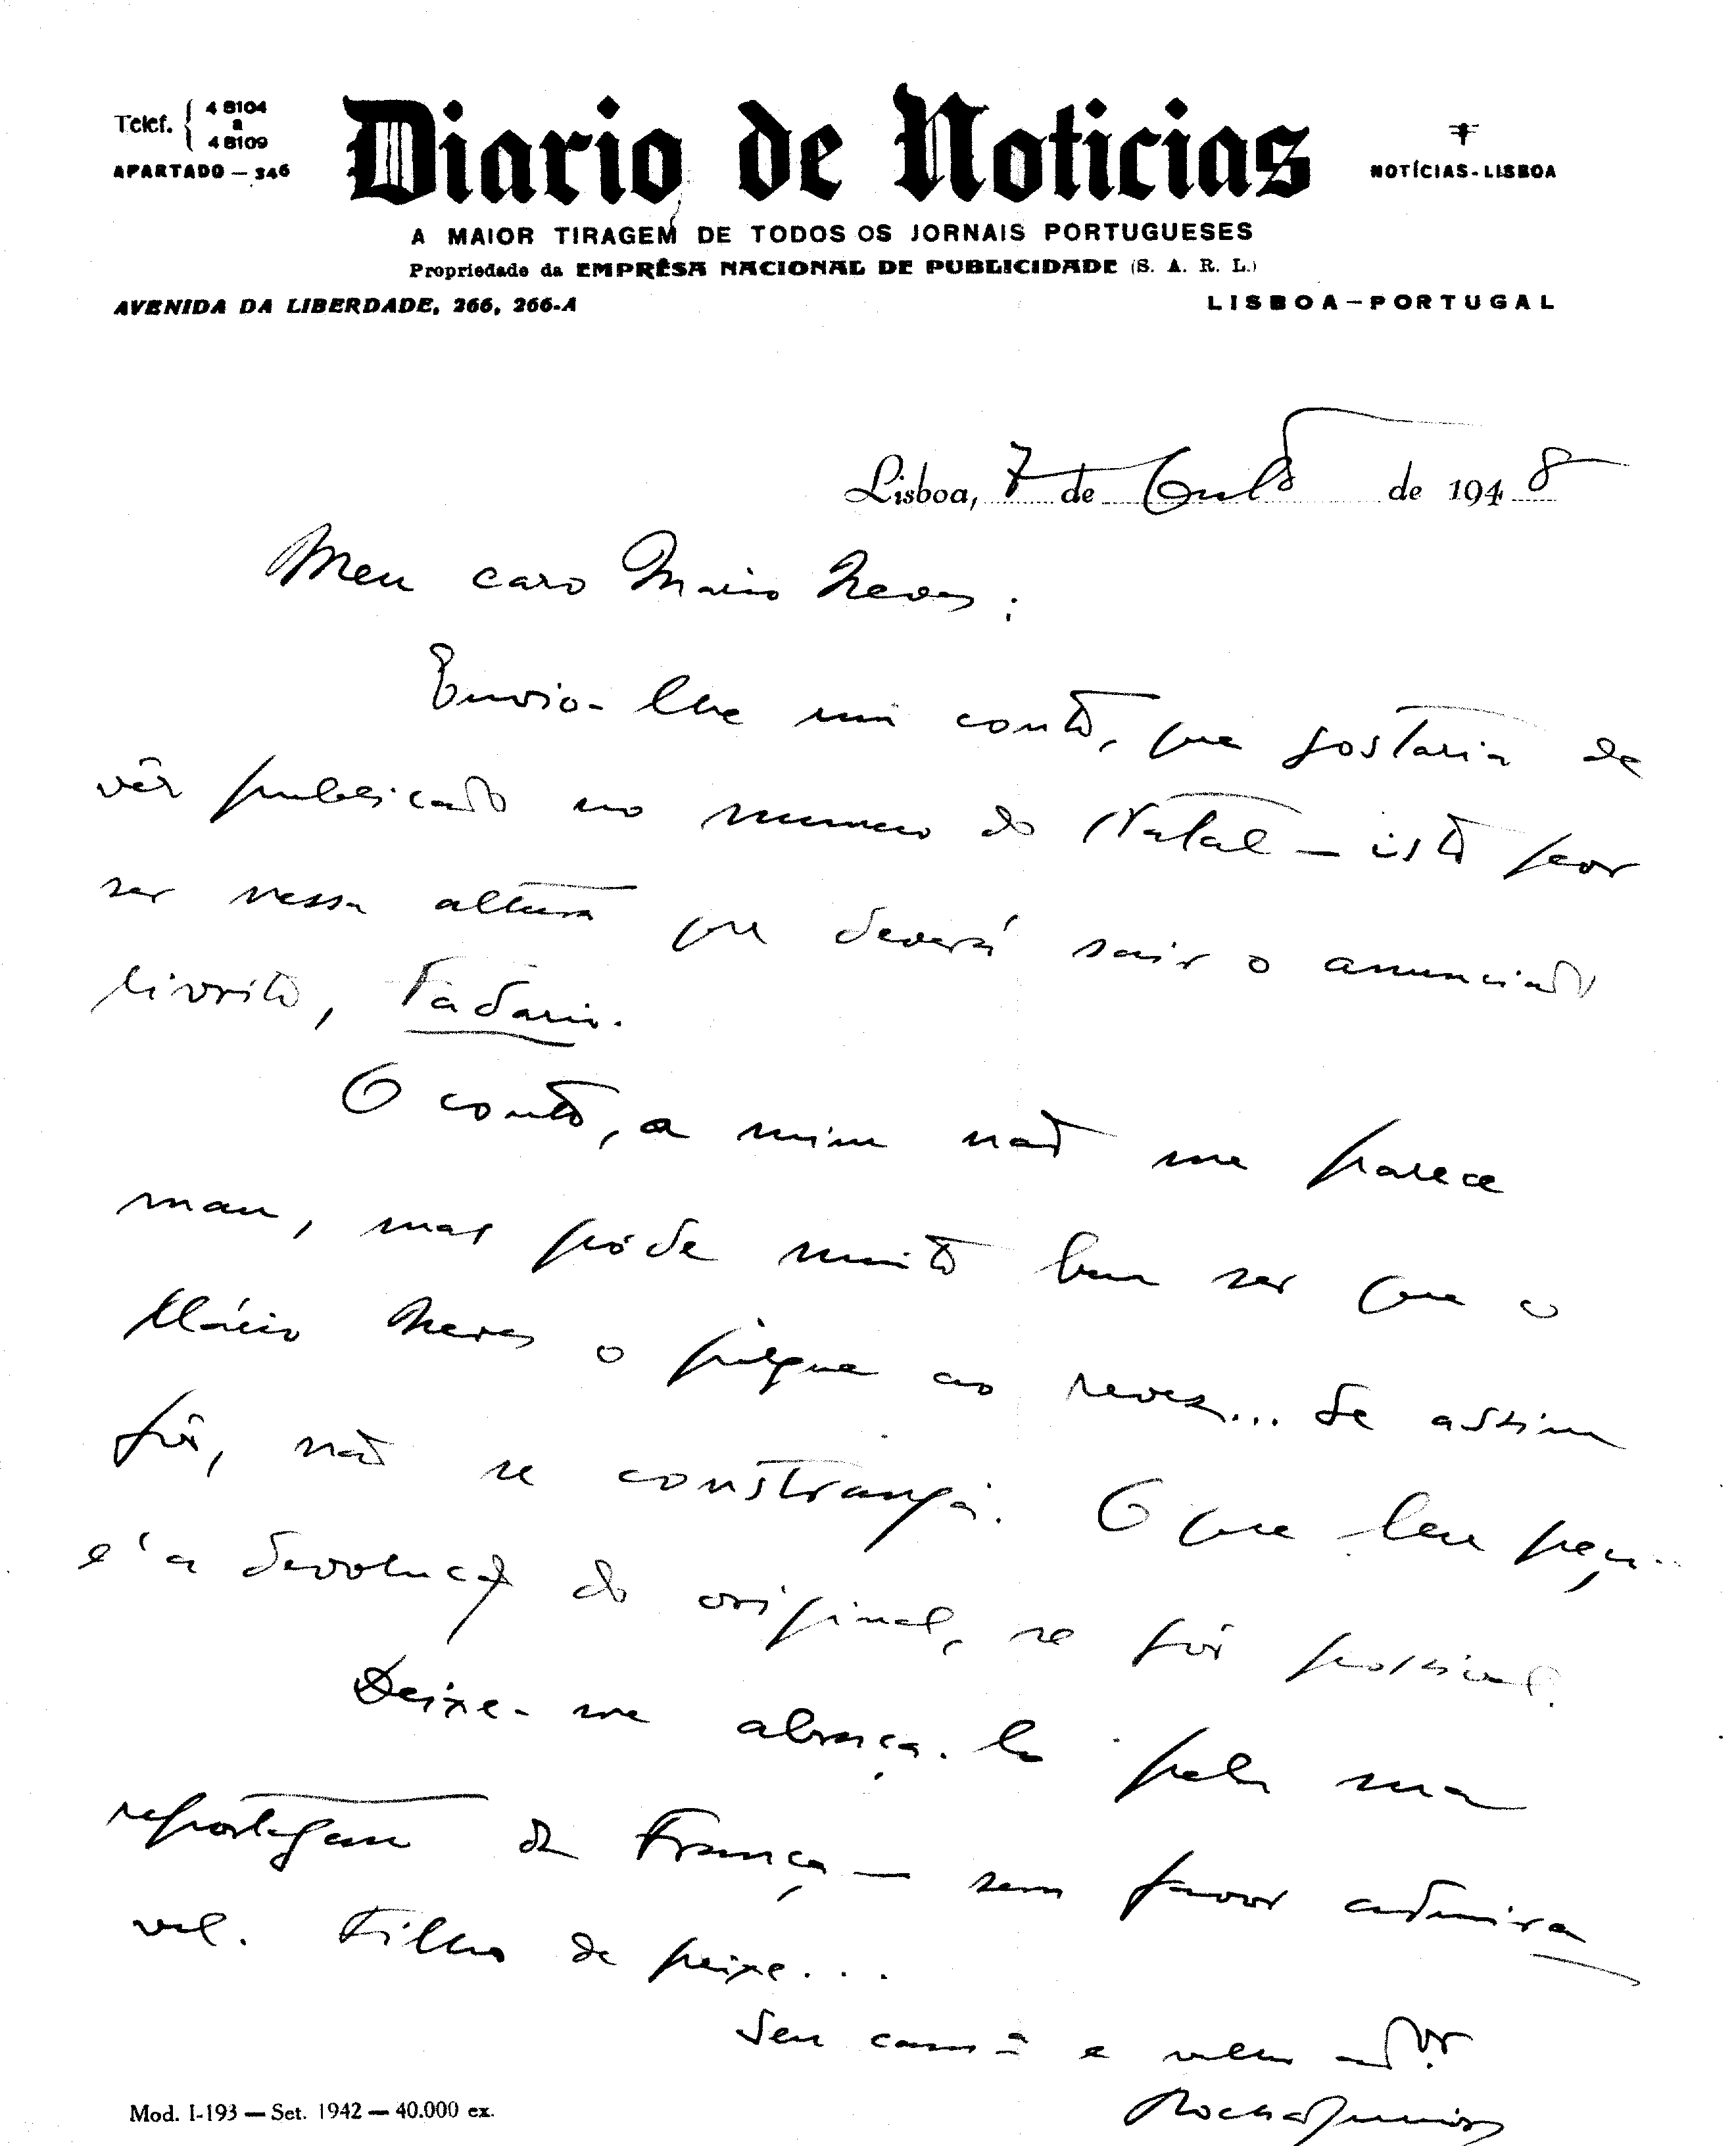 Telef. { 4 8104
a
4 8109
APARTADO — 346
Diario de Noticias
NOTÍCIAS-LISBOA
A MAIOR TIRAGEM DE TODOS OS JORNAIS PORTUGUESES
Propriedade da EMPRÊSA NACIONAL DE PUBLICIDADE (S. A. R. L.)
AVENIDA DA LIBERDADE, 266, 266-A
LISBOA — PORTUGAL
Lisboa, 7 de Outº de 1948
Meu caro Mario Neves:
Envio-lhe um conto, que gostaria de
vêr publicado no numero do Natal — isto por
ser nessa altura que deverá sair o anunciado
livrito, Fadario.
O conto, a mim não me parece
mau, mas póde muito bem ser que o
Mário Neves o julgue ao revez... Se assim
fôr, não se constranja. O que lhe peço
é a devolução do original, se fôr possivel.
Deixe-me abraça-lo pela sua
reportagem de França — sem favor admira
vel. Filho de peixe...
Seu camª e velho adºr
Rocha Junior
Mod. I-193 — Set. 1942 — 40.000 ex.